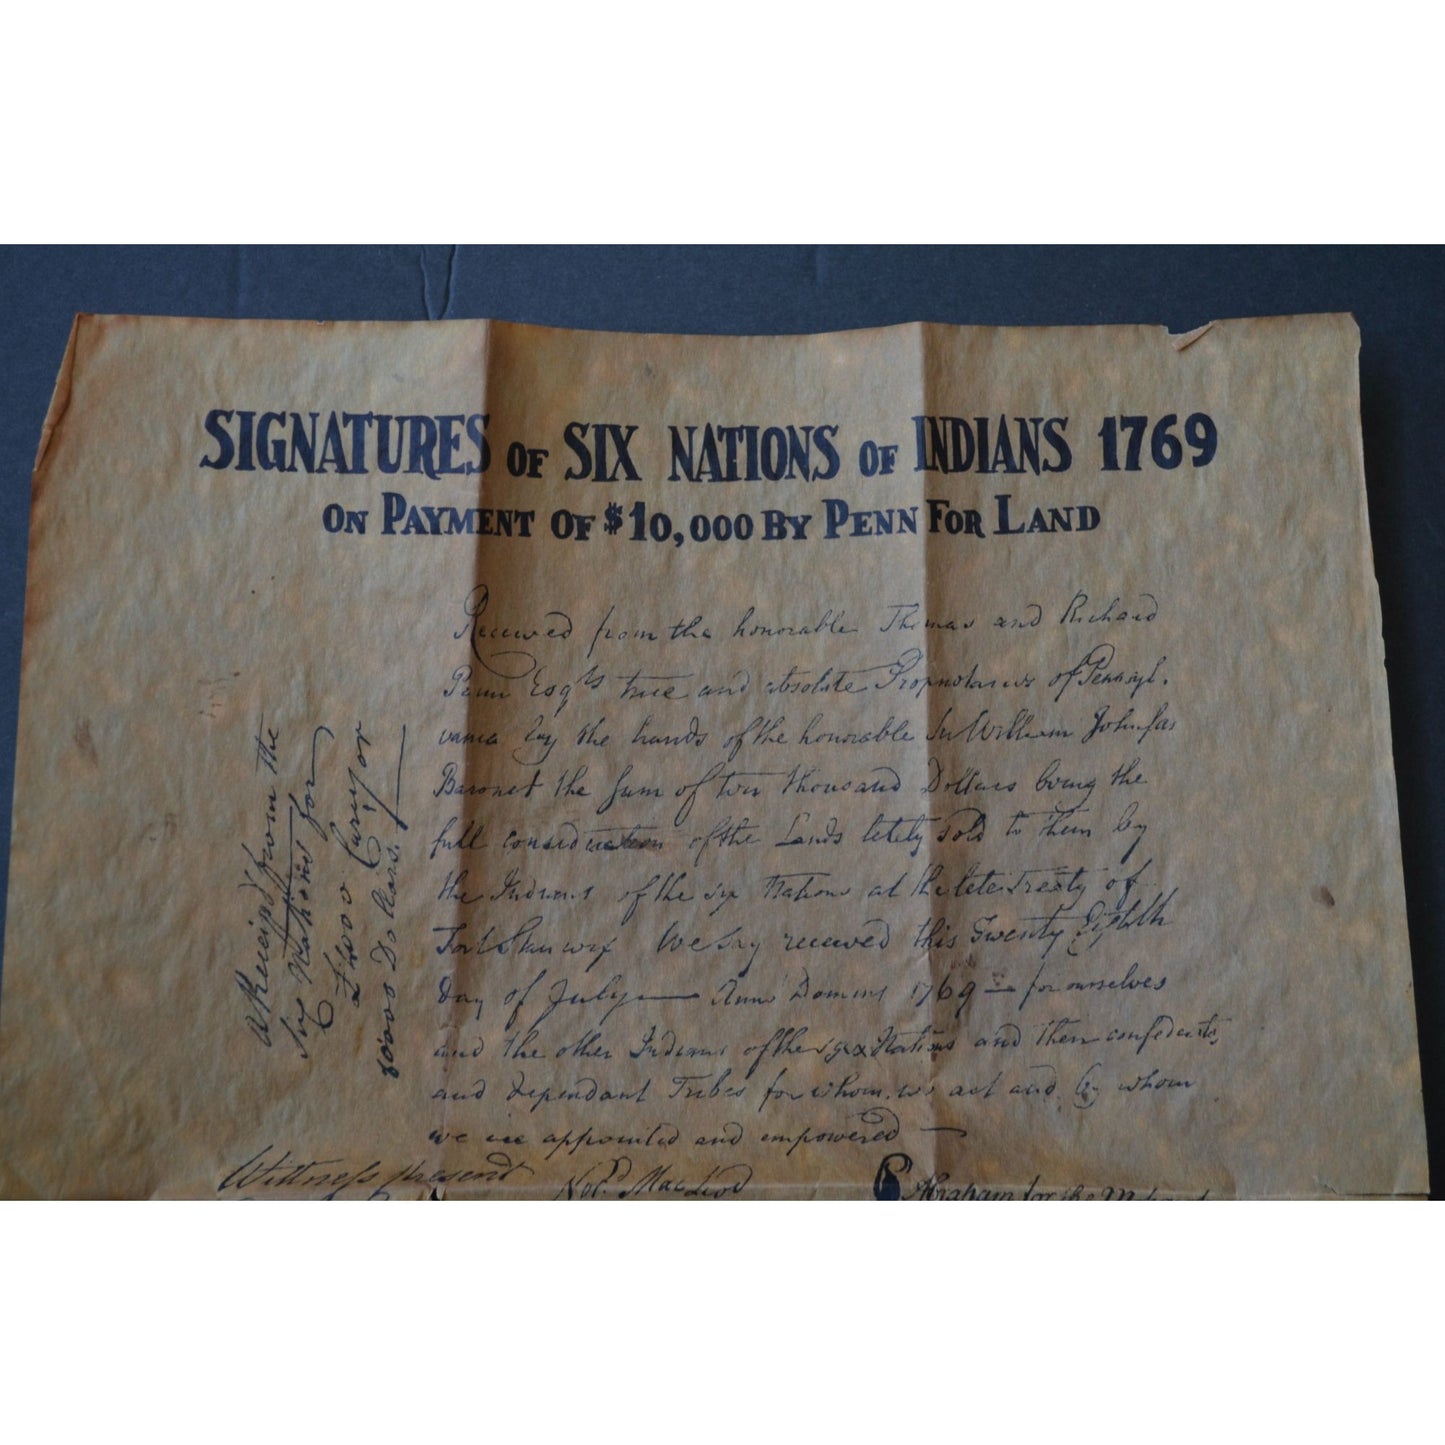 SIGNATURES OF SIX NATIONS OF INDIANS 1769
ON PAYMENT OF $10,000 BY PENN FOR LAND
Received from the honorable Thomas and Richard
Penn Esqrs true and absolute Proprietaries of Pennsyl.
vania by the hands of the honorable Sir William Johnson
Baronet the Sum of ten thousand Dollars being the
full consideration of the Lands lately Sold to them by
the Indians of the six Nations at the late treaty of
Fort Stanwix We Say received this Twenty Eighth
Day of July Anno Domini 1769 for ourselves
and the other Indians of the six Nations and their confederates,
and dependant Tribes for whom we act and by whom
we are appointed and empowered
Witness present
Mac Leod
Abraham for the
a Receipt from the
Six Nations for
10000 Dollars.